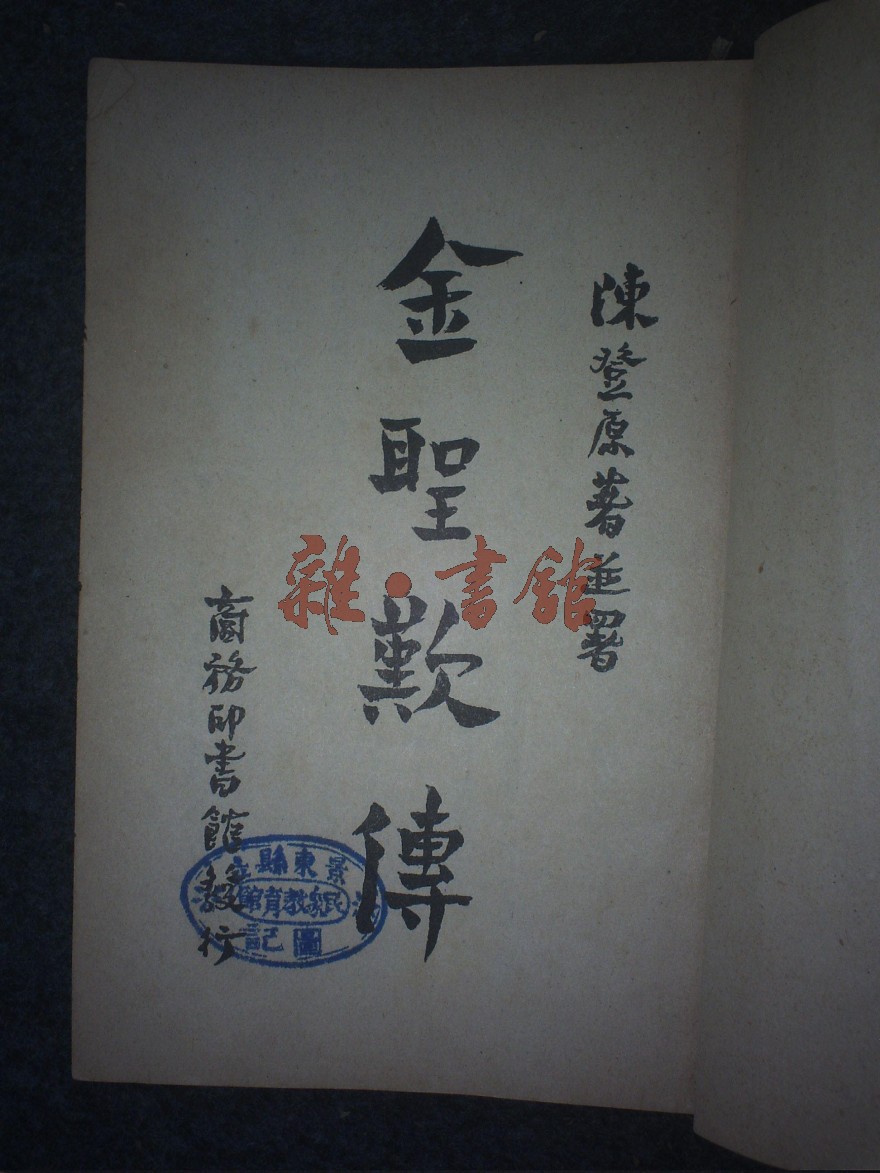 陳登原著並署
金聖歎傳
商務印書館發行
雜·書館
景東縣立
民衆教育館
圖記